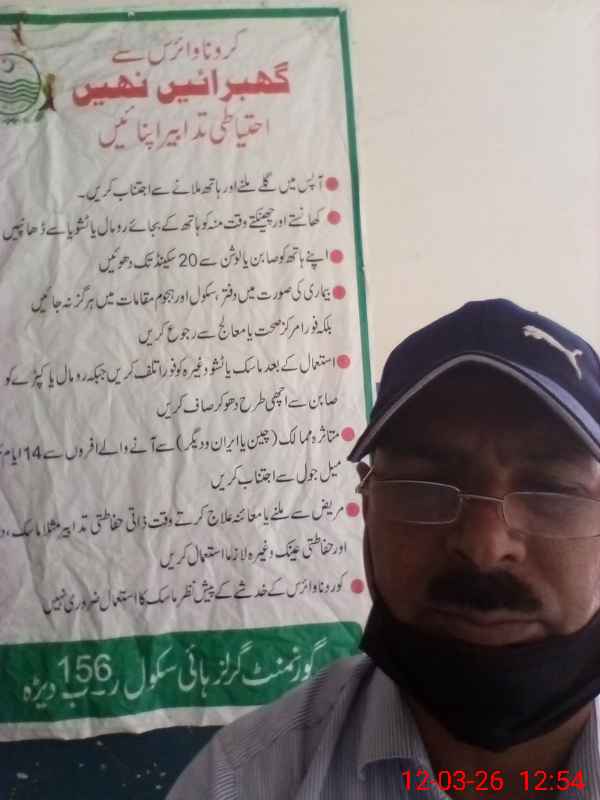 کرونا وائرس سے
گھبرائیں نھیں
احتیاطی تدابیر اپنائیں
آپس میں گلے ملنے اور ہاتھ ملانے سے اجتناب کریں۔
کھانستے اور چھینکتے وقت منہ کو ہاتھ کے بجائے رومال یا ٹشو پاسے ڈھانپیں
اپنے ہاتھ کو صابن یا لوشن سے 20 سیکنڈ تک دھوئیں
بیماری کی صورت میں دفتر، سکول اور ہجوم مقامات میں ہرگز نہ جائیں
بلکہ فوراً مرکز صحت یا معالج سے رجوع کریں
استعمال کے بعد ماسک یا ٹشو وغیرہ کو فوراً تلف کریں جبکہ رومال یا کپڑے کو
صابن سے اچھی طرح دھو کر صاف کریں
متاثرہ ممالک (چین یا ایران و دیگر) سے آنے والے افروں سے 14 ایام
میل جول سے اجتناب کریں
مریض سے ملنے یا معائنہ علاج کرتے وقت ذاتی حفاظتی تدابیر مثلاً ماسک،
اور حفاظتی عینک وغیرہ لازماً استعمال کریں
کورونا وائرس کے خدشے کے پیش نظر ماسک کا استعمال ضروری نہیں
گورنمنٹ گرلز ہائی سکول 156 ر۔ب دیڑہ
12-03-26 12:54